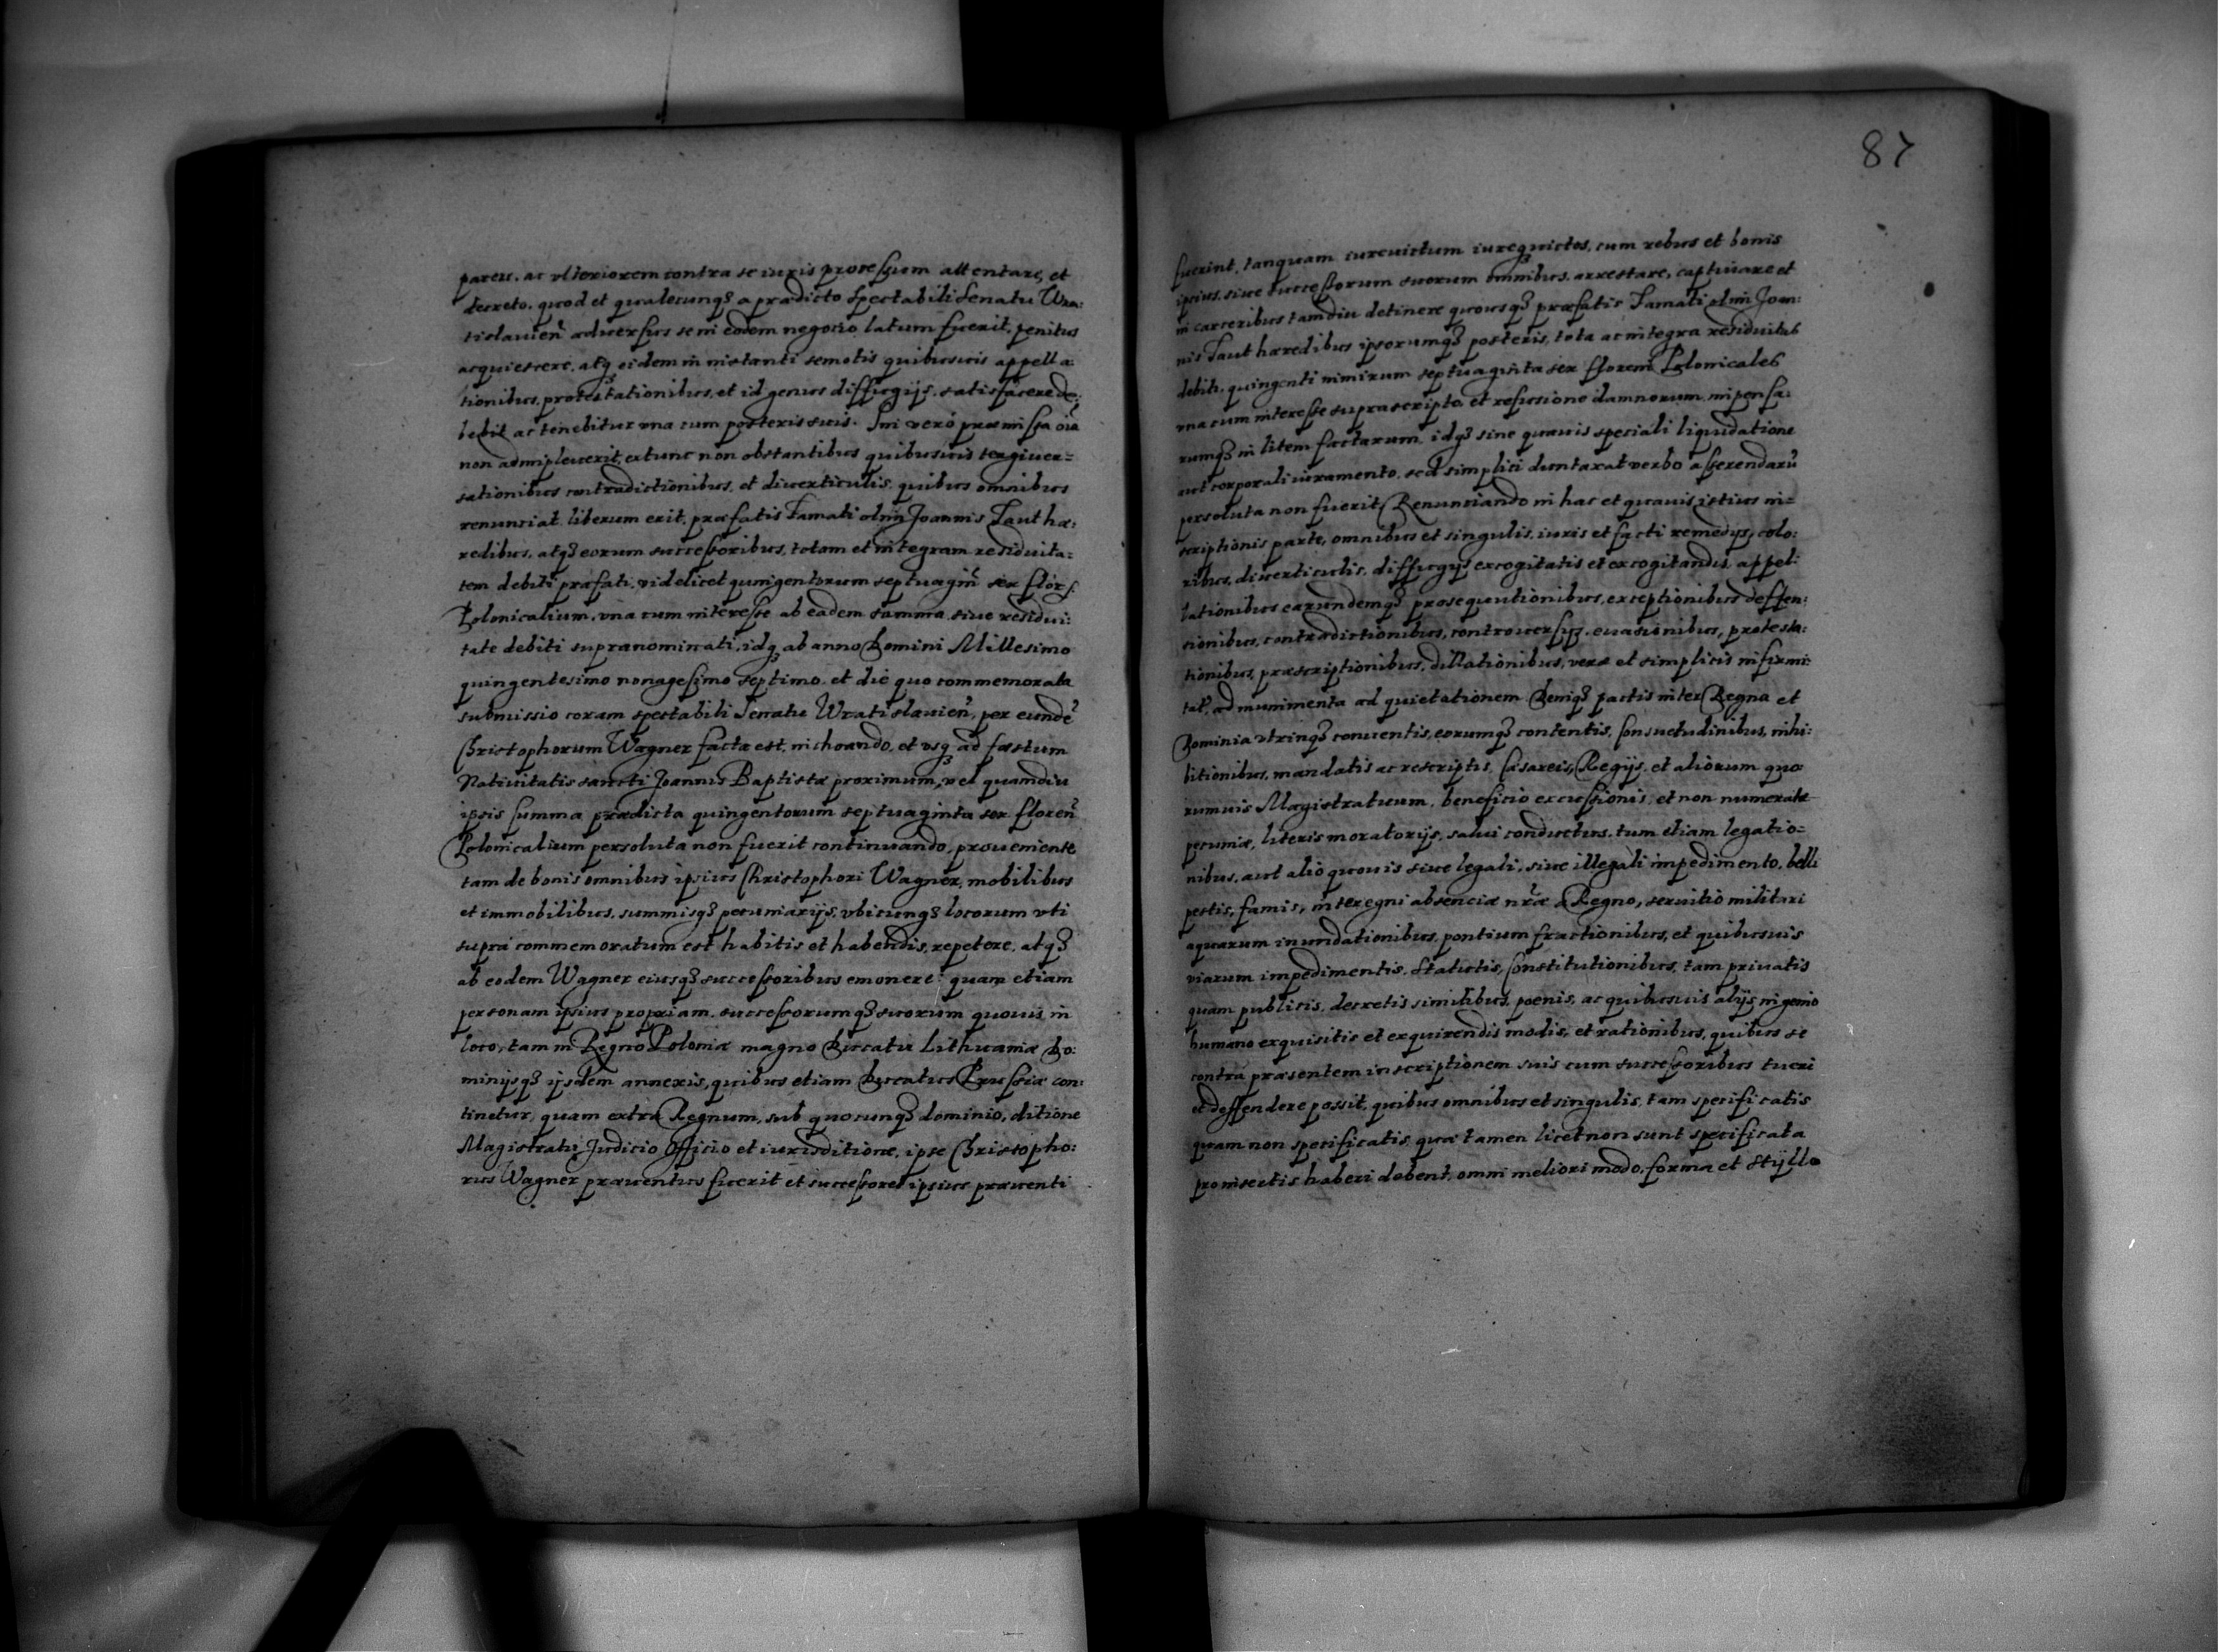 parere, ac vlteriorem contra se iuris processum attentare, et
decreto, quod et qualecunq3 a prædicto Spectabili Senatu Wra:
tislauien̄ aduersus se in eodem negocio latum fuerit, penitus
acquiescere, atq3 eidem in instanti semotis quibusuis appella:
tionibus, protestationibus, et id genus diffugijs, satisfacere de:
bebit ac tenebitur vna cum posteris suis. Sin verò præmissa oīa
non adimpleuerit, extunc non obstantibus quibusuis tergiuer=
sationibus contradictionibus, et diuerticulis, quibus omnibus
renunciat, liberum erit, præfatis Famati olim Joannis Taut hæ:
redibus, atq3 eorum successoribus, totam et integram residuita:
tem debiti præfati, videlicet quingentorum septuagin̄ sex flor
Polonicalium, vna cum interesse ab eadem summa, siue residui:
tate debiti supranominati, idq3 ab anno Domini Millesimo
quingentesimo nonagesimo septimo, et die quo commemorata
submissio coram spectabili Senatu Wratislauien̄, per eundē
Christophorum Wagner facta est, inchoando, et vsq3 ad fæstum
Natiuitatis sancti Joannis Baptistæ proximum, vel quamdiu
ipsis summa prædicta quingentorum septuaginta sex floren̄
Polonicalium persoluta non fuerit continuando, proueniente
tam de bonis omnibus ipsius Christophori Wagner, mobilibus
et immobilibus, summisq3 pecuniarijs, vbicunq3 locorum vti
supra commemoratum est habitis et habendis, repetere, atq3
ab eodem Wagner eiusq3 successoribus emonere: quam etiam
personam ipsius propriam, successorumq3 suorum quouis in
loco, tam in Regno Poloniæ magno Ducatu Lithuaniæ Do:
minijsq3 ijsdem annexis, quibus etiam Ducatus Prussiæ con:
tinetur, quam extra Regnum, sub quocunq3 dominio, ditione
Magistratu Judicio Officio et iurisditione, ipse Christopho:
rus Wagner præuentus fuerit et successores ipsius præuenti
87
fuerint, tanquam iureuictum iureq3 victos, cum rebus et bonis
ipsius, siue successorum suorum omnibus, arrestare, captiuare et
in carceribus tamdiu detinere quousq3 præfatis Famati olim Joan:
nis Taut hæredibus ipsorumq3 posteris, tota ac integra residuitas
debiti, quingenti nimirum septuaginta sex floreni Polonicales
vna cum interesse suprascripto, et refusione damnorum, inpensa:
rumq3 in litem factarum, idq3 sine quauis speciali liquidatione
aut corporali iuramento, sed simplici duntaxat verbo asserendarū
persoluta non fuerit, Renunciando in hac et quauis istius in=
scriptionis parte, omnibus et singulis, iuris et facti remedijs, colo:
ribus, diuerticulis, diffugijs excogitatis et excogitandis, appel:
lationibus earundemq3 prosequutionibus, exceptionibus deffen:
sionibus, contradictionibus, controuersijs, euasionibus, protesta:
tionibus, præscriptionibus, dillationibus, veræ et simplicis infirmi:
tat̄, ad munimenta ad quietationem Deniq3 pactis inter Regna et
Dominia vtrinq3 conuentis, eorumq3 contentis, Consuetudinibus, inhi:
bitionibus, mandatis ac rescriptis, Cæsareis, Regijs, et aliorum quo
rumuis Magistratuum, beneficio excussionis, et non numeratæ
pecuniæ, literis moratorijs, salui conductus, tum etiam legatio=
nibus, aut alio quouis siue legali, siue illegali impedimento, belli
pestis, famis, interegni absenciæ nr̄æ à Regno, seruitio militari
aquarum inundationibus, pontium fractionibus, et quibusuis
viarum impedimentis, Statutis, Constitutionibus, tam priuatis
quam publicis, decretis similibus, poenis, ac quibusuis alijs, ingenio
humano exquisitis et exquirendis modis, et rationibus, quibus se
contra præsentem inscriptionem suis cum successoribus tueri
et deffendere possit, quibus omnibus et singulis, tam specificatis
quam non specificatis, quæ tamen licet non sunt specificata
pro insertis haberi debent, omni meliori modo, forma et Stijllo